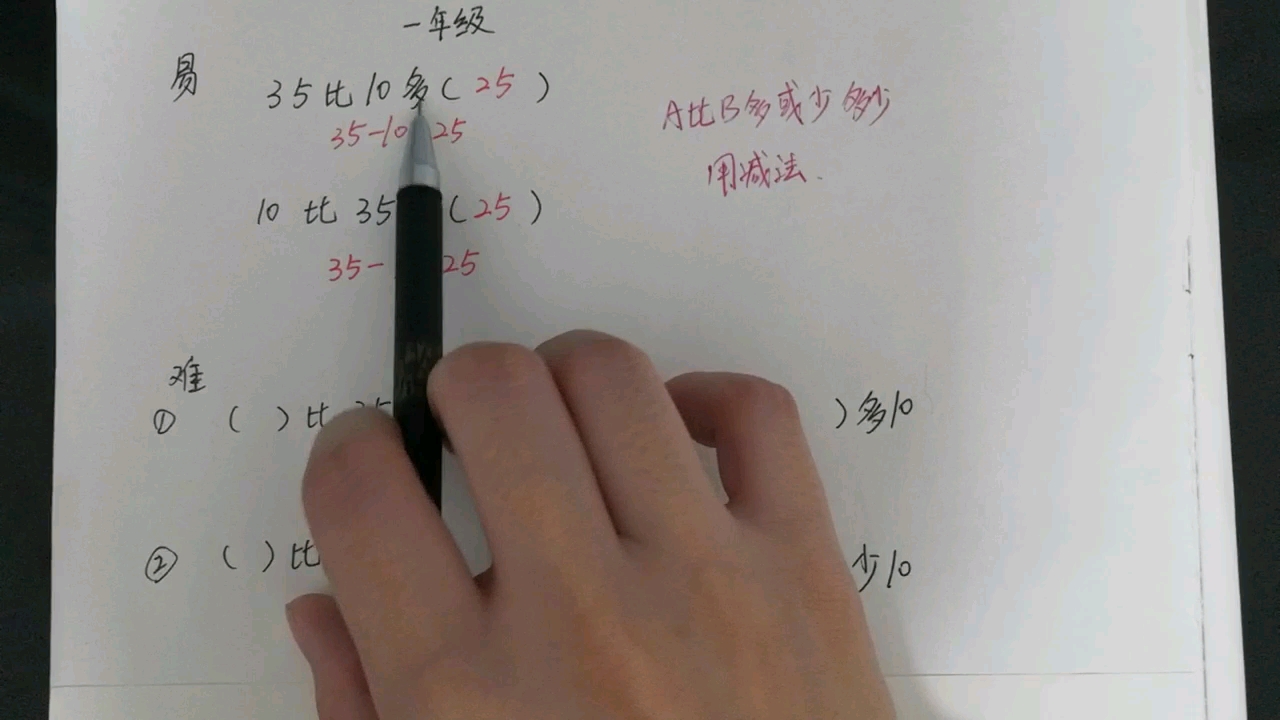 一年级
易
35比10多(25)
35-10 25
A比B多或少多少
用减法.
10 比 35 (25)
35- 25
难
① ( )比 35 )多10
② ( )比 少10